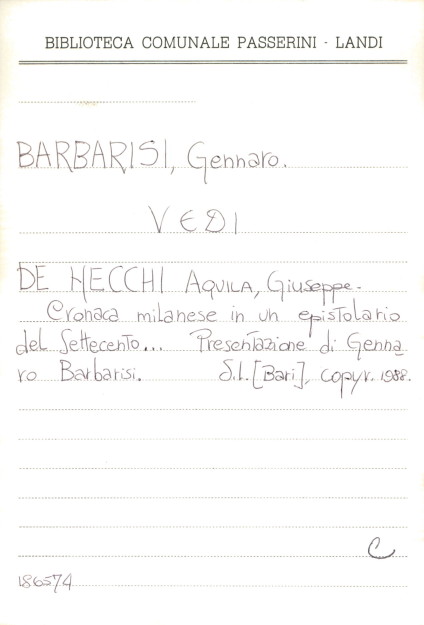 BIBLIOTECA COMUNALE PASSERINI - LANDI
BARBARISI, Gennaro.
VEDI
DE HECCHI AQUILA, Giuseppe.
Cronaca milanese in un epistolario
del Settecento... Presentazione di Genna
ro Barbarisi. S.l. [Bari], copyr. 1988.
C
186574